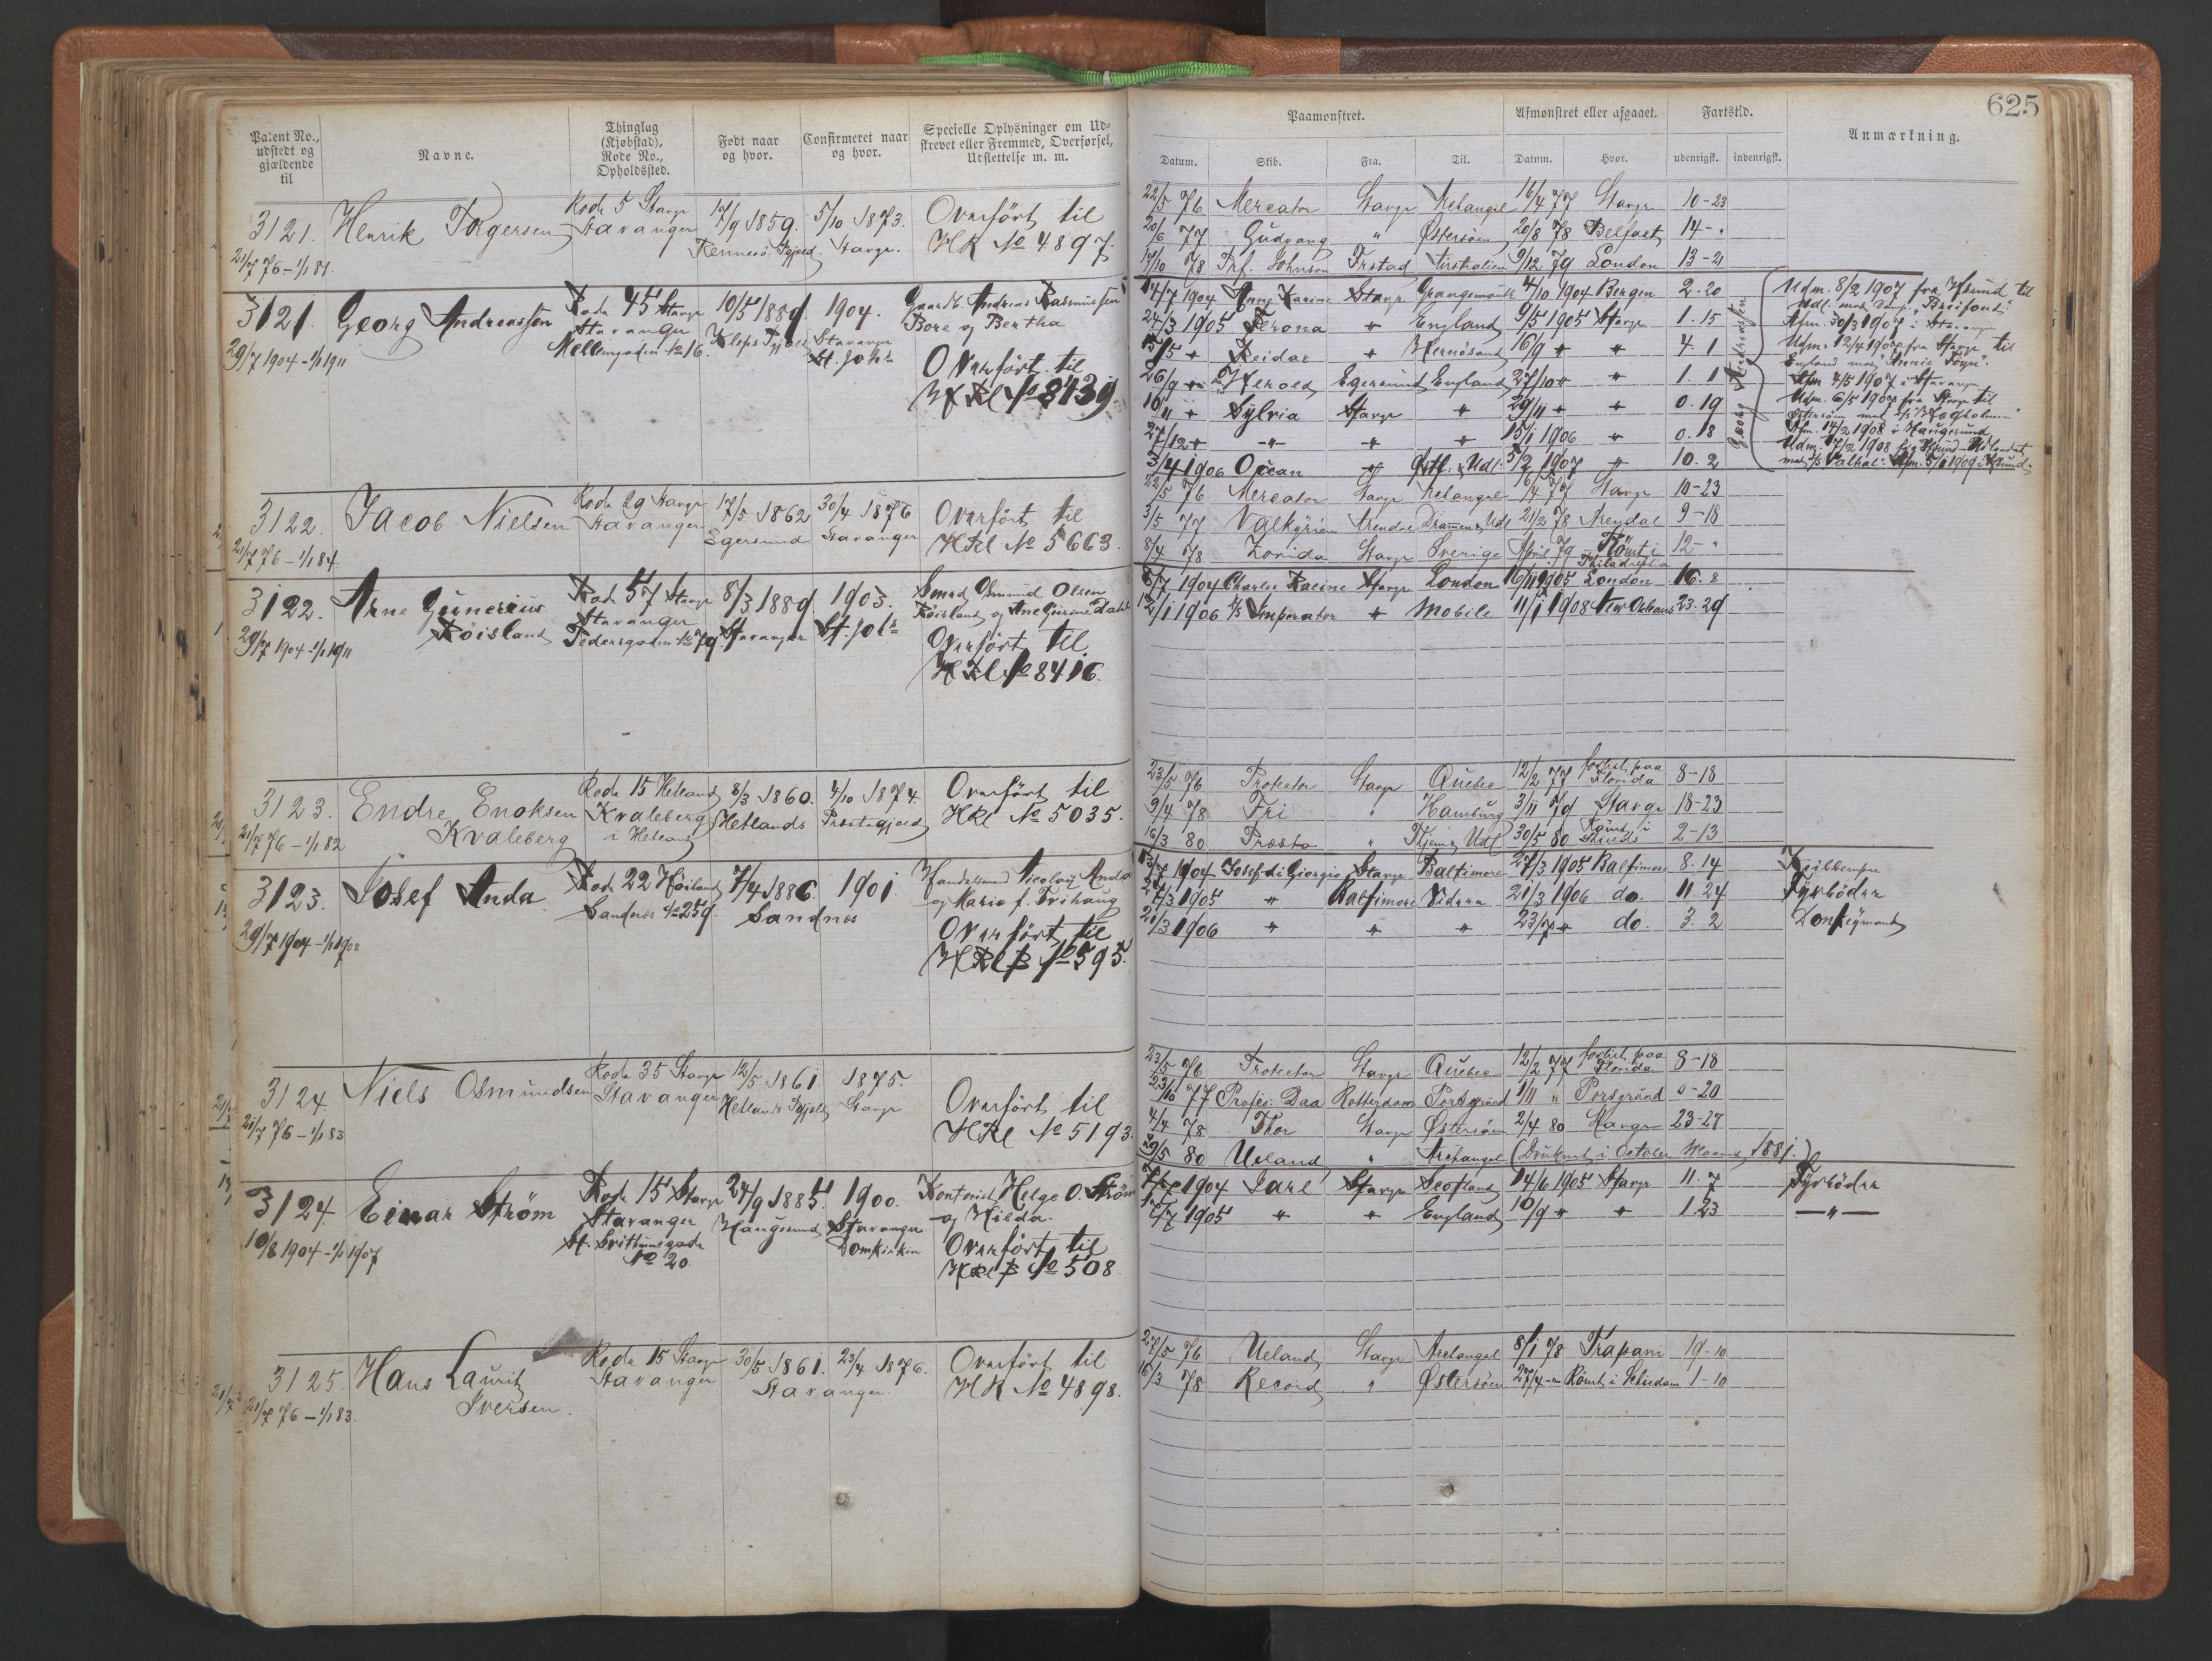 625
Patent No., udstedt og gjældende til
Navne.
Thinglag (Kjøbstad), Rode No., Opholdssted.
Født naar og hvor.
Confirmeret naar og hvor.
Specielle Oplysninger om Udskrevet eller Fremmed, Overførsel, Udslettelse m. m.
Paamønstret.
Afmønstret eller afgaaet.
Fartstid.
Anmærkning.
Datum. Skib. Fra. Til. Datum. Hvor. udenrigsk. indenrigsk.
3121. Henrik Torgersen Rode 5 Stavgr 17/9 1859. 5/10 1873. Overført til
21/7 76 – 1/1 81. Stavanger Rennesö Pgjeld. Stavgr. HR No 4897.
22/5 76 Mercator Stavgr Archangel 16/4 77 Stavgr 10-23
20/6 77 Gudvang " Østersöen 20/8 78 Belfast 14- "
14/10 78 Prf. Johnson Frstad Australien 9/12 79 London 13-21
3121. Georg Andreassen Rode 45 Stavgr 10/5 1889. 1904. Gaardb. Andreas Rasmussen
29/7 1904 – 1/1 1911 Stavanger Kleps Pgjeld Stavanger Bore og Bertha
No 16. St. Joh's
Overført til
HRl No 8439
14/7 1904 Anne Karine Stavgr Grangemouth 4/10 1904 Bergen 2.20
24/3 1905 Verona " England 9/5 1905 Stavgr 1.15
15/5 " Reidar " Hernösand 16/9 " " 4.1
26/9 " Herold Egersund England 27/10 " " 1.1
10/11 " Sylvia Stavgr " 29/11 " " 0.19
27/12 " -"- " " 15/1 1906 " 0.18
3/4 1906 Ocean " Østs. & Udl. 5/2 1907 " 10.2
Georg Andreassen
Udm. 8/2 1907 fra Hsund til
Udl. med Damp. "Breifond".
Afm. 30/3 1907 i Stavanger
Udm. 12/4 1907 fra Stavgr til
England med
Afm. 4/5 1907 i Stavanger
Udm. 6/5 1907 fra Stavgr til
Østersöen med
Afm. 14/2 1908 i Haugesund
Udm. 17/2 1908 fra Hsund – Udlandet
med "Valhal". Afm. 5/1 1909 i Hsund.
3122. Jacob Nielsen Rode 29 Stavgr 17/5 1862 30/4 1876 Overført til
21/7 76 – 1/1 84. Stavanger Egersund Stavanger HRl No 5663.
22/5 76 Mercator Stavgr Archangel 16/4 77 Stavgr 10-23
3/5 77 Valkyrien Arendal Drammen & Udl 21/2 78 Arendal 9-18
8/4 78 Zorida Stavgr Sverige April 79 Römt i Philadelphia 12- "
3122. Arne Gunerius Röisland Rode 57 Stavgr 8/3 1889. 1903. Smed Osmund Olsen
29/7 1904 – 1/1 1911 Stavanger Pedersgaden No 79. Stavanger St. Joh's Röisland og Ane Gurine Dahl
Overført til
HRl No 8416.
6/7 1904 Charles Racine Stavgr London 16/11 1905 London 16.8
12/1 1906 S/S Imperator " Mobile 11/1 1908 New Orleans 23.29
3123. Endre Enoksen Kvaleberg Rode 15 Hetland 8/3 1860. 4/10 1874. Overført til
21/7 76 – 1/1 82 Kvaleberg i Hetland Hetlands Præstegjeld HRl No 5035.
23/5 76 Protector Stavgr Quebec 12/2 77 forlist paa Florida 8-18
9/4 78 Fri " Hamburg 3/11 79 Stavgr 18-23
16/3 80 Præsto " Udl 30/5 80 Römt i Shields 2-13
3123. Josef Anda Rode 22 Höiland 7/4 1886. 1901 Handelsmand Nicolay Anda
29/7 1904 – 1/1 1908 Sandnes No 259. Sandnes og Marie f. Trihaug
Overført til
HRl B No 595.
13/7 1904 Josef di Giorgio Stavgr Baltimore 27/3 1905 Baltimore 8.14
27/3 1905 " Baltimore Videre 21/3 1906 do. 11.24 Fyrböder
21/3 1906 " " " 23/7 " do. 3.2 Donkeymand
3124. Niels Osmundsen Rode 35 Stavgr 12/5 1861. 1875. Overført til
21/7 76 – 1/1 83 Stavanger Hetlands Pgjeld Stavgr HRl No 5193.
23/5 76 Protector Stavgr Quebec 12/2 77 forlist paa Florida 8-18
23/10 77 Profes: Daa Rotterdam Porsgrund 1/11 " Porsgrund 0-20
4/4 78 Thor Stavgr Østersöen 2/4 80 Stavgr 23-27
29/5 80 Ueland " Archangel (Druknet i October Maaned 1881.)
3124. Einar Ström Rode 15 Stavgr 24/9 1885. 1900. Kontorist Helge O. Ström
10/8 1904 – 1/1 1907 Stavanger St. Svithunsgade No 20. Haugesund Stavanger Domkirken og Hilda.
Overført til
HRl B No 508.
7/7 1904 Jarl Stavgr Scotland 14/6 1905 Stavgr 11.7 Fyrböder
17/7 1905 " " England 10/9 " " 1.23 –"–
3125. Hans Laurits Iversen. Rode 15 Stavgr 30/5 1861. 23/4 1876. Overført til
21/7 76 – 1/1 83. Stavanger Stavanger. HR No 4898.
27/5 76 Ueland Stavgr Archangel 8/1 78 Trapani 19-10
16/3 78 Record " Østersöen 27/4 -"- Römt i Schiedam 1-10